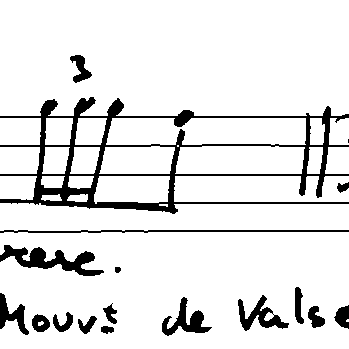 3
cresc.
Mouvt de Valse